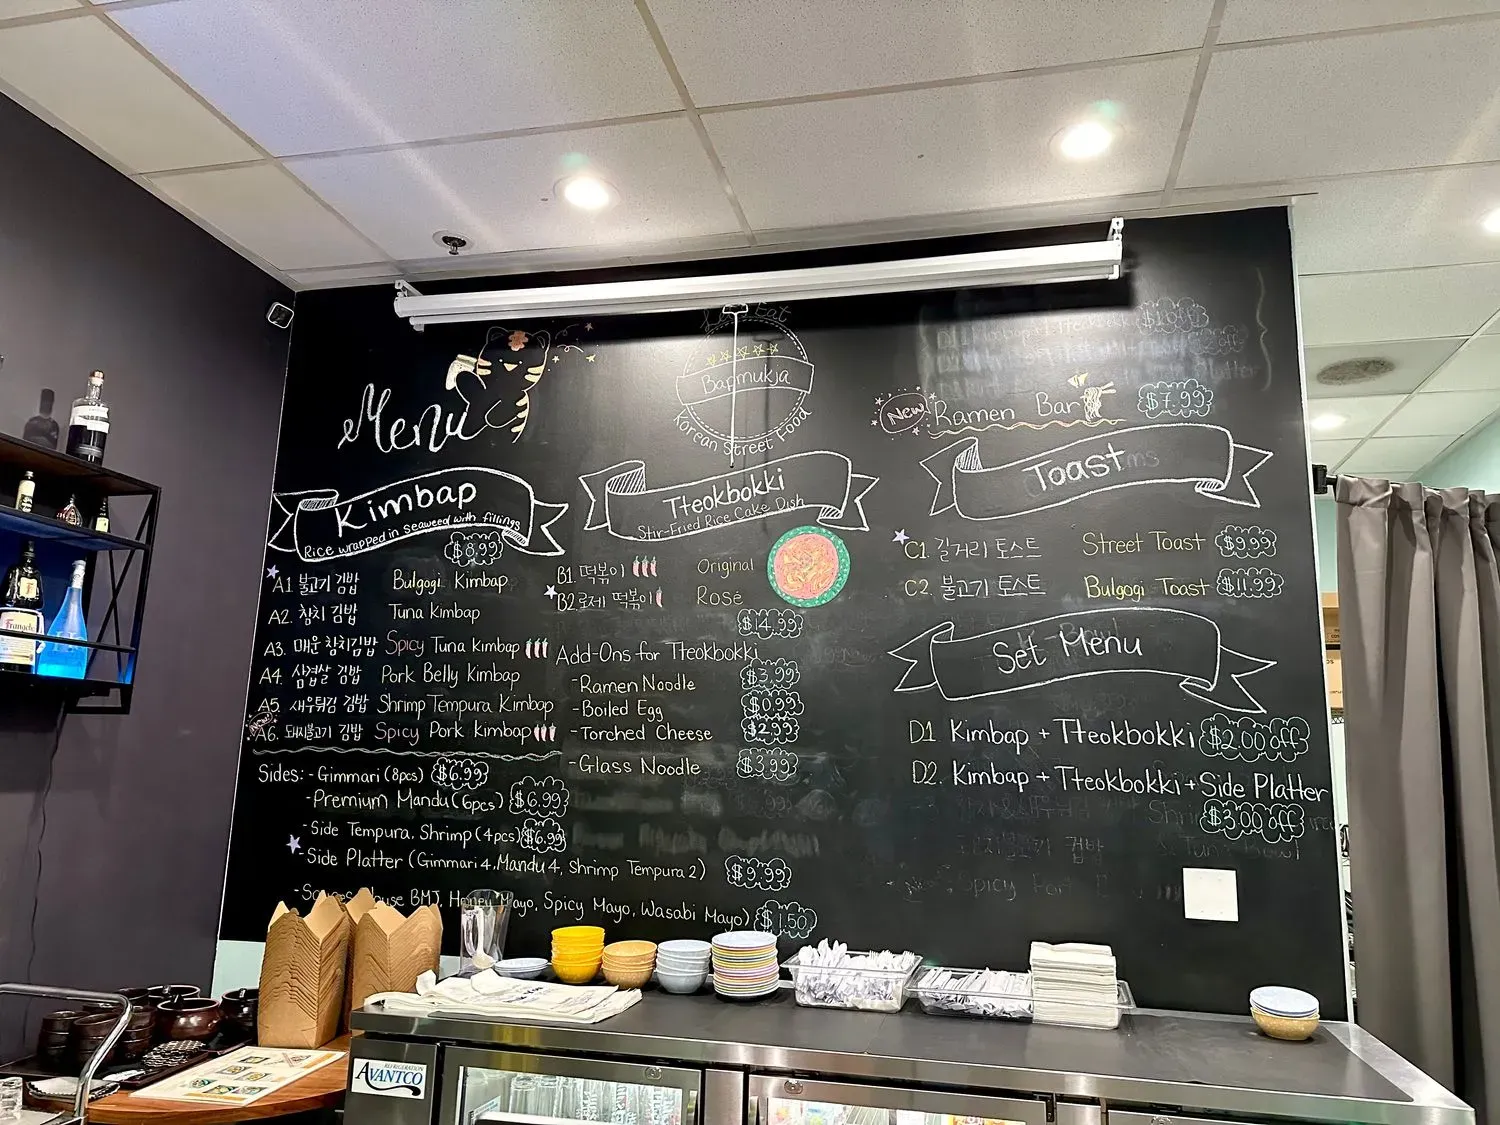 Menu
Bapmukja
Korean Street Food
New
Ramen Bar
$7.99
Kimbap
Rice wrapped in seaweed with fillings
$8.99
A1 불고기 김밥 Bulgogi Kimbap
A2. 참치 김밥 Tuna Kimbap
A3. 매운 참치김밥 Spicy Tuna Kimbap
A4. 삼겹살 김밥 Pork Belly Kimbap
A5. 새우튀김 김밥 Shrimp Tempura Kimbap
A6. 돼지불고기 김밥 Spicy Pork Kimbap
Sides: - Gimmari (8pcs) $6.99
- Premium Mandu (6pcs) $6.99
- Side Tempura. Shrimp (4pcs) $6.99
- Side Platter (Gimmari 4, Mandu 4, Shrimp Tempura 2) $9.99
BMJ, Honey Mayo, Spicy Mayo, Wasabi Mayo) $1.50
Tteokbokki
Stir-Fried Rice Cake Dish
B1. 떡볶이 Original
B2. 로제 떡볶이 Rosé
$14.99
Add-Ons for Tteokbokki
- Ramen Noodle $3.99
- Boiled Egg $0.99
- Torched Cheese $2.99
- Glass Noodle $3.99
Toast
C1. 길거리 토스트 Street Toast $9.99
C2. 불고기 토스트 Bulgogi Toast $11.99
Set Menu
D1. Kimbap + Tteokbokki $2.00 off
D2. Kimbap + Tteokbokki + Side Platter
$3.00 off
REFRIGERATION
AVANTCO